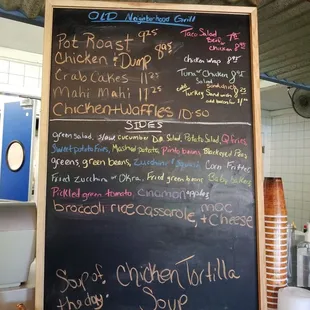 OLD Neighborhood Grill
Pot Roast 9.25
Chicken + Dump 8.95
Crab Cakes 11.25
Mahi Mahi 11.25
Chicken + Waffles 10.50
Taco Salad 7.95
Beef
chicken 8.95
chicken wrap 8.95
Tuna or Chicken 8.95
Salad
Sandwich
Turkey Sand
SIDES
green salad, cucumber Dill Salad, Potato Salad, Q fries
Sweet potato Fries, Mashed potatoes, Pinto beans, Blackeyed Peas
greens, green beans, Zucchini + Squash, Corn Fritter
Fried Zucchini or Okra, Fried green beans, Baby bakes
Pickled green tomato, Cinnamon apples
broccoli rice casserole, mac + Cheese
Soup of the day: Chicken Tortilla
Soup